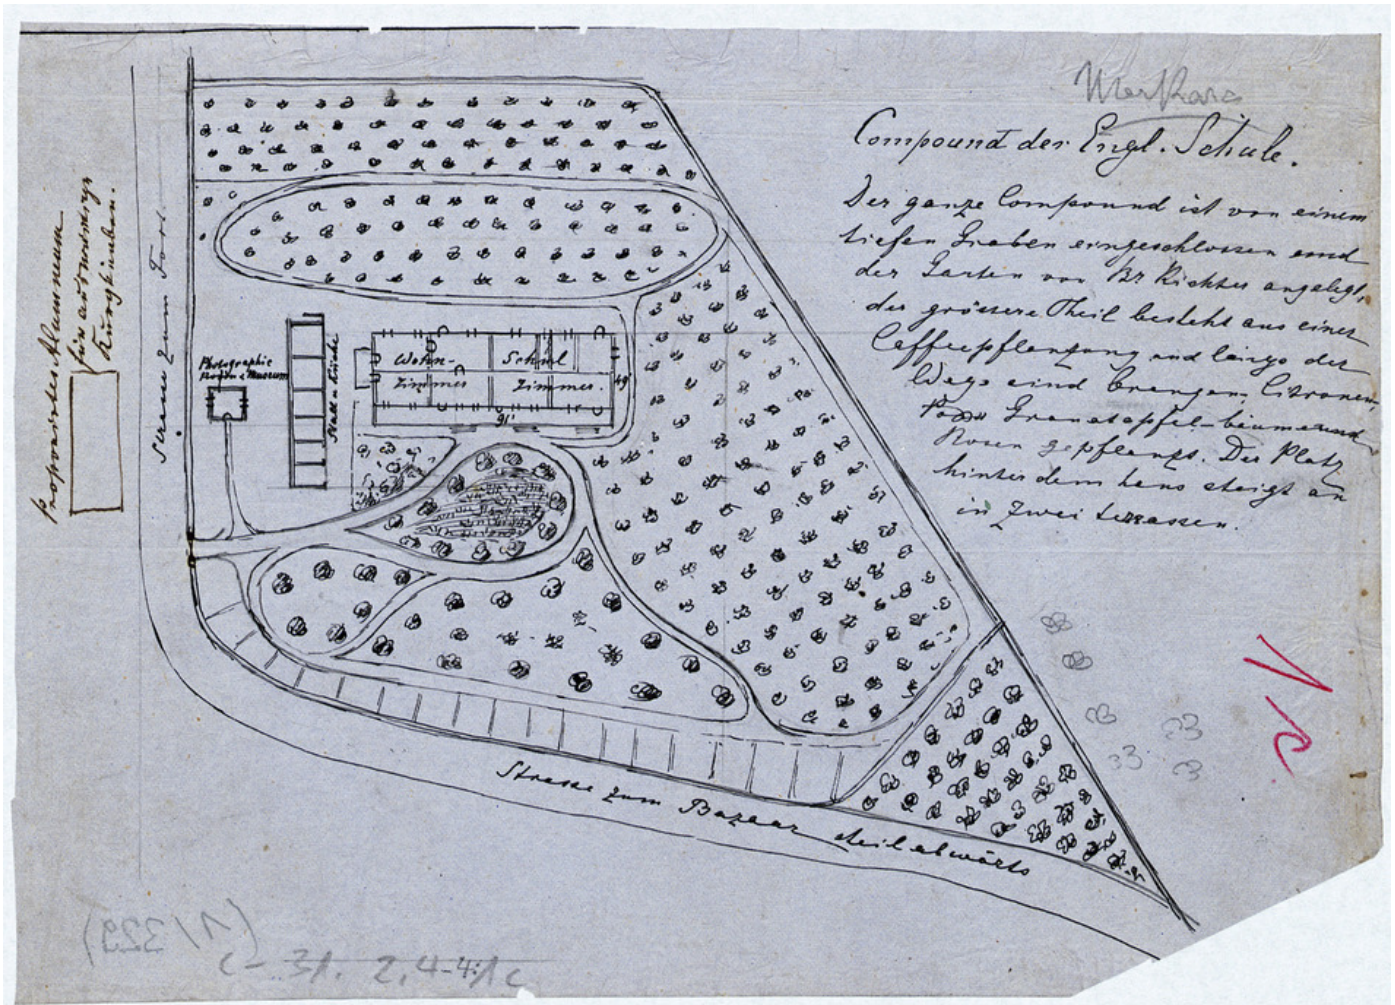 Merkara
Compound der Engl. Schule.
Der ganze Compound ist von einem
tiefen Graben eingeschlossen und
der Garten von Br Richter angelegt,
der grössere Theil besteht aus einer
Caffeepflanzung und längs der
Wege sind Orangen, Citronen,
Granatapfel-bäume und
Rosen gepflanzt. Der Platz
hinter dem haus steigt an
in zwei terrassen.
proponirtes Alumneum
für auswärtige
Kurgknaben.
Strasse zum Fort.
Photographie
Room & Museum
Stall u Küche
Wohn-
Zimmer
Schul
Zimmer.
49
91'
Strasse zum Bazaar steil abwärts
1 c
(1/339)
C-31. 2,4-4:1c